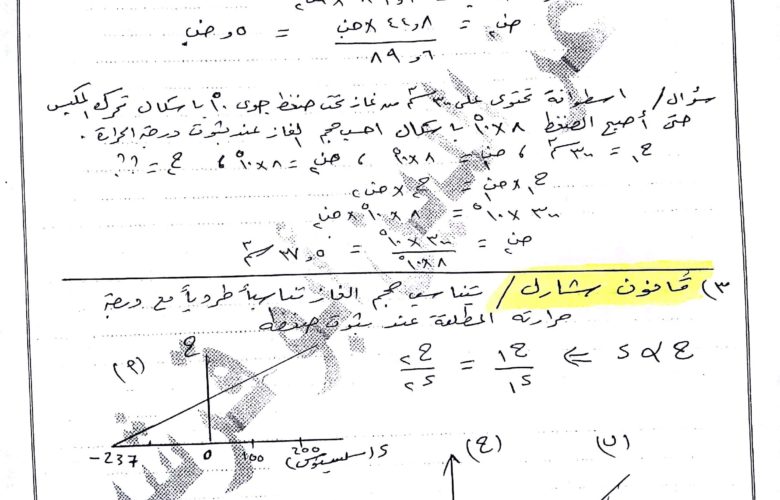 ض₂ = ٤٤,٨ × ض₁ = ٠,٥ ض₁
٨٩,٦
سؤال / اسطوانة تحتوي على ٣٠٠ سم٣ من غاز تحت ضغط جوي ١٠^٥ باسكال تحرك المكبس
حتى أصبح الضغط ٨ × ١٠^٥ باسكال احسب حجم الغاز عند ثبوت درجة الحرارة.
ح₁ = ٣٠٠ سم٣ ، ض₁ = ١٠^٥ ، ض₂ = ٨ × ١٠^٥ ، ح₂ = ؟؟
ح₁ × ض₁ = ح₂ × ض₂
٣٠٠ × ١٠^٥ = ٨ × ١٠^٥ × ض₂
ض₂ = ٣٠٠ × ١٠^٥ = ٣٧,٥ سم٣
٨ × ١٠^٥
٣) قانون شارل / يتناسب حجم الغاز تناسباً طردياً مع درجة
حرارته المطلقة عند ثبوت ضغطه
ح α د ⇐ ح₁ = ح₂
د₁ د₂
(أ) ح
-237 0 100 200 د (سلسيوس)
(ب) (ج)